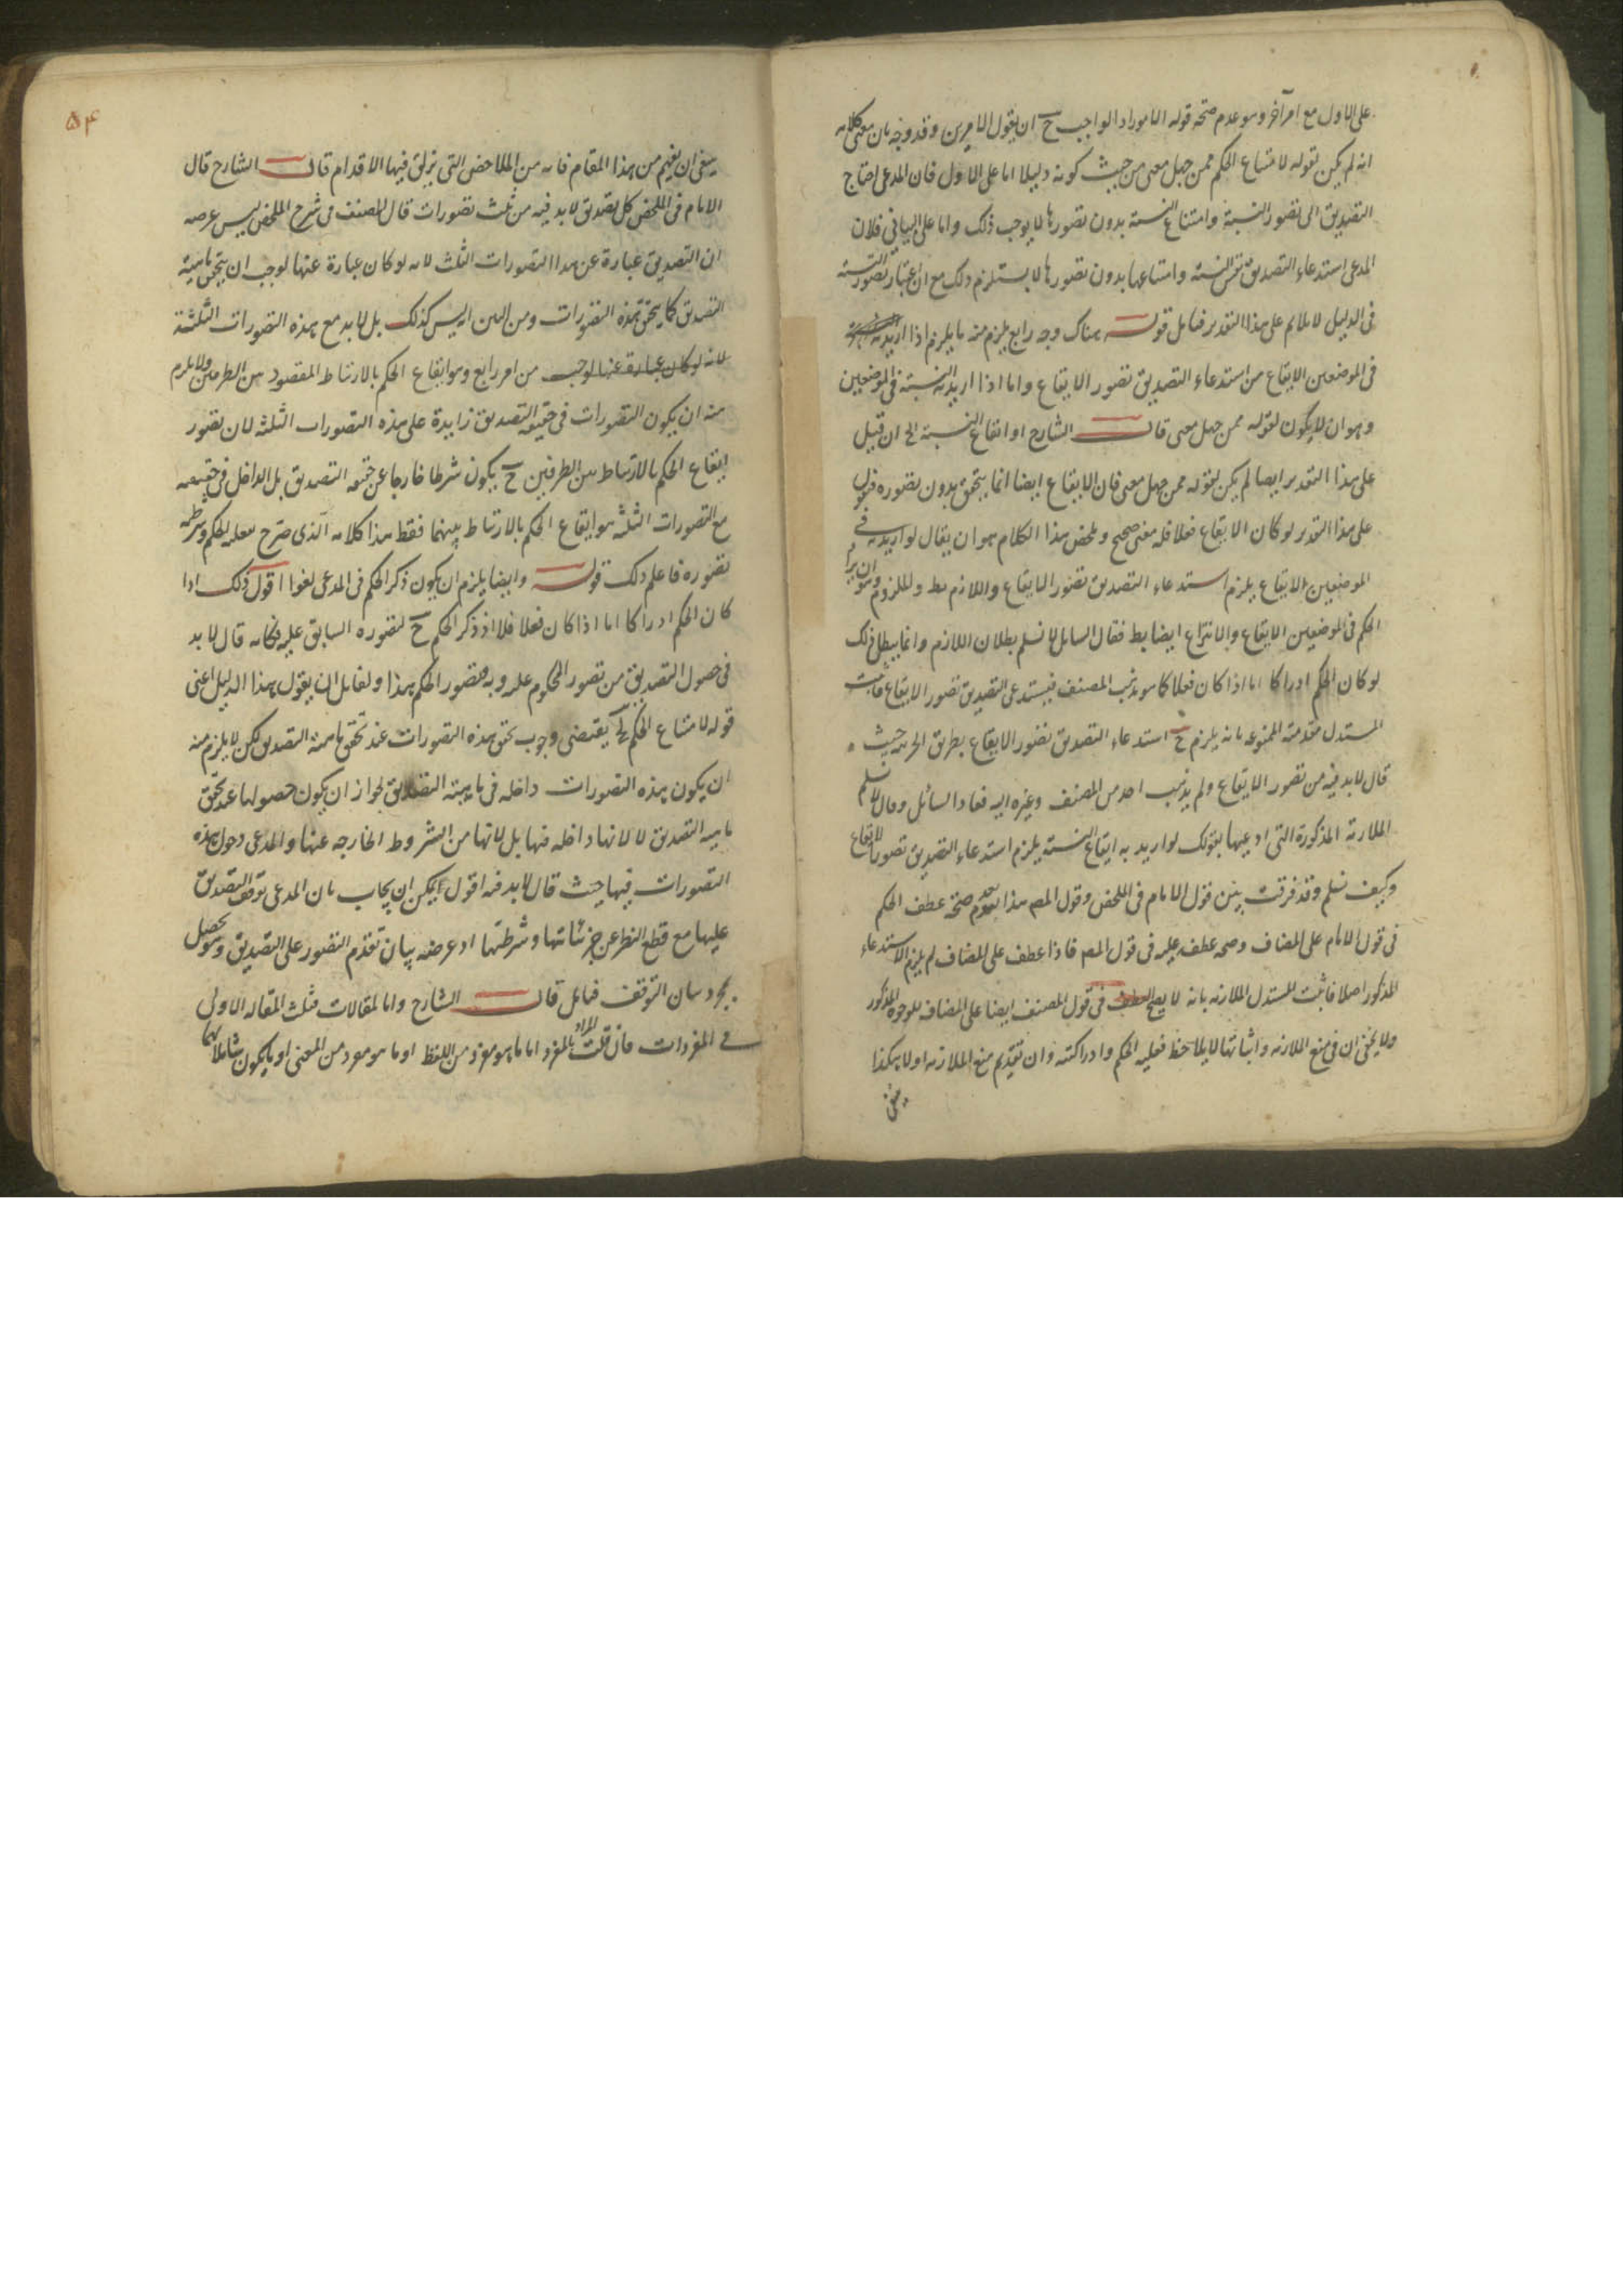 على الاول مع امر آخر وهو عدم صحة قوله الامور او الواجب ح ان يقول الامرين وقد وجه بان معنى كلامه
انه لم يكن لقوله لامتناع الحكم ممن جهل معنى من حيث كونه دليلا اما على الاول فلان المدعى احتاج
التصديق الى تصور النسبة وامتناع النسبة بدون تصورها لا يوجب ذلك واما على الثانى فلان
المدعى استدعاء التصديق نفس النسبة وامتناعها بدون تصورها لا يستلزم ذلك مع ان اعتبار تصور النسبة
فى الدليل لا يلايم على هذا التقدير فتأمل قوله هناك وجه رابع يلزم منه ما يلزم اذا اريد به
فى الموضعين الايقاع من استدعاء التصديق تصور الايقاع واما اذا اريد به النسبة فى الموضعين
وهو ان لا يكون لقوله ممن جهل معنى قال الشارح او ايقاع النسبة الخ ان قيل
على هذا التقدير ايضا لم يكن لقوله ممن جهل معنى فان الايقاع ايضا انما يتحقق بدون تصوره فنقول
على هذا التقدير لو كان الايقاع فعلا فله معنى صحيح وملخص هذا الكلام هو ان يقال لو اريد به فى
الموضعين الايقاع يلزم استدعاء التصديق تصور الايقاع واللازم بط والملزوم وهو ان يراد
الحكم فى الموضعين الايقاع والانتزاع ايضا بط فقال السائل لا نسلم بطلان اللازم وانما يبطل ذلك
لو كان الحكم ادراكا اما اذا كان فعلا كما هو مذهب المصنف فيستدعى التصديق تصور الايقاع فاثبت
المستدل مقدمته الممنوعة بانه يلزم ح استدعاء التصديق تصور الايقاع بطريق الجزئية حيث
قال لا بد فيه من تصور الايقاع ولم يذهب احد من المصنف وغيره اليه فعاد السائل وقال لا نسلم
الملازمة المذكورة التى ادعيتها بقولك لو اريد به ايقاع النسبة يلزم استدعاء التصديق تصور الايقاع
وكيف نسلم وقد فرقت بين قول الامام فى الملخص وقول المص هذا بعدم صحة عطف الحكم
فى قول الامام على المضاف وصحة عطفه عليه فى قول المص فاذا عطف على المضاف لم يلزم الاستدعاء
المذكور اصلا فاثبت المستدل الملازمة بانه لا يصح العطف فى قول المصنف ايضا على المضاف للوجوه المذكور
ولا يخفى ان فى منع الملازمة واثباتها لا يلاحظ فعلية الحكم وادراكيته وان تقديم منع الملازمة اولا هكذا
ينبغى
۵۴
ينبغى ان يفهم من هذا المقام فانه من الملاحض التى يزلق فيها الاقدام قال الشارح قال
الامام فى الملخص كل تصديق لا بد فيه من ثلث تصورات قال المصنف فى شرح الملخص ليس غرضه
ان التصديق عبارة عن هذا التصورات الثلث لانه لو كان عبارة عنها لوجب ان يتحقق ماهية
التصديق كلما يتحقق هذه التصورات ومن البين انه ليس كذلك بل لا بد مع هذه التصورات الثلثة
لانه لو كان عبارة عنها لوجب من امر رابع وهو ايقاع الحكم بالارتباط المقصود بين الطرفين ولا يلزم
منه ان يكون التصورات فى حقيقة التصديق زايدة على هذه التصورات الثلثة لان تصور
ايقاع الحكم بالارتباط بين الطرفين ح يكون شرطا خارجا عن حقيقة التصديق بل الداخل فى حقيقته
مع التصورات الثلثة هو ايقاع الحكم بالارتباط بينهما فقط هذا كلامه الذى صرح بفعلية الحكم وشرطية
تصوره فاعلم ذلك قوله وايضا يلزم ان يكون ذكر الحكم فى المدعى لغوا اقول ذلك اذا
كان الحكم ادراكا اما اذا كان فعلا فلا اذ ذكر الحكم ح لتصوره السابق عليه فكانه قال لا بد
فى حصول التصديق من تصور المحكوم عليه وبه وتصور الحكم هذا ولقائل ان يقول هذا الدليل اعنى
قوله لامتناع الحكم الخ يقتضى وجوب تحقق هذه التصورات عند تحقق ماهية التصديق لكن لا يلزم منه
ان يكون هذه التصورات داخلة فى ماهية التصديق لجواز ان يكون حصولها عند تحقق
ماهية التصديق لا لانها داخلة فيها بل لانها من الشروط الخارجة عنها والمدعى دخول هذه
التصورات فيها حيث قال لا بد فيه اقول يمكن ان يجاب بان المدعى توقف التصديق
عليها مع قطع النظر عن جزئياتها وشرطيتها اذ غرضه بيان تقدم التصور على التصديق وهو يحصل
بمجرد بيان التوقف فتأمل قال الشارح واما المقالات فثلث المقالة الاولى
فى المفردات فان قلت المراد بالمفرد اما ما هو مفرد من اللفظ او ما هو مفرد من المعنى او ما يكون شاملا لهما